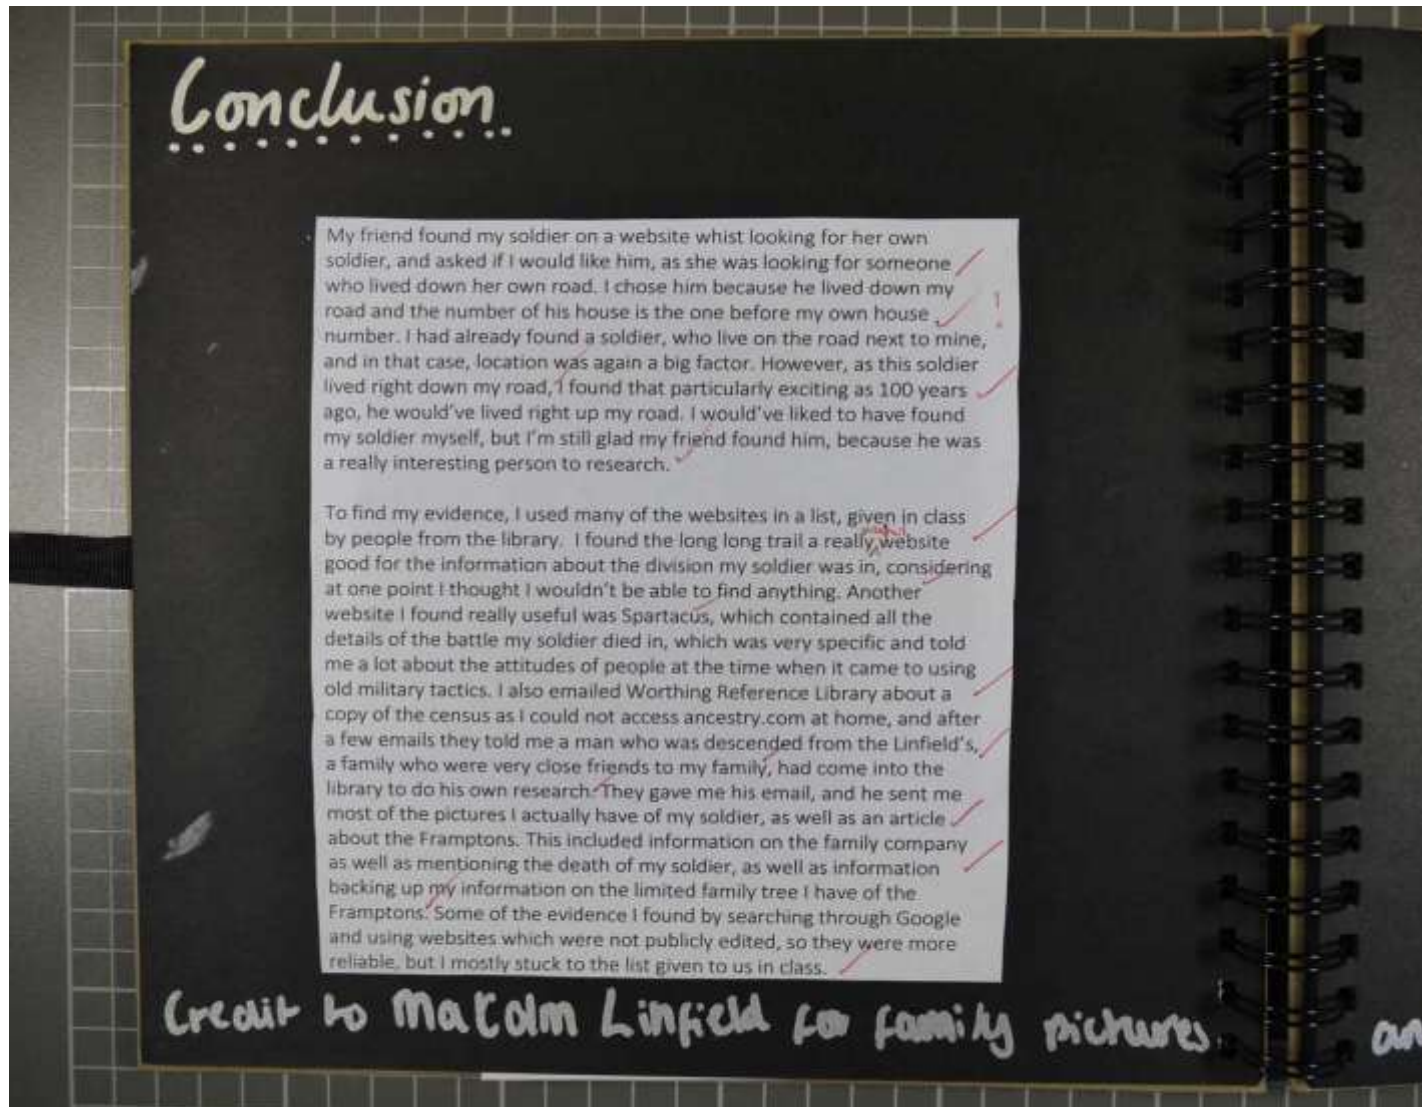 Conclusion
My friend found my soldier on a website whist looking for her own
soldier, and asked if I would like him, as she was looking for someone
who lived down her own road. I chose him because he lived down my
road and the number of his house is the one before my own house
number. I had already found a soldier, who live on the road next to mine,
and in that case, location was again a big factor. However, as this soldier
lived right down my road, I found that particularly exciting as 100 years
ago, he would've lived right up my road. I would've liked to have found
my soldier myself, but I'm still glad my friend found him, because he was
a really interesting person to research.
To find my evidence, I used many of the websites in a list, given in class
by people from the library. I found the long long trail a really website
good for the information about the division my soldier was in, considering
at one point I thought I wouldn't be able to find anything. Another
website I found really useful was Spartacus, which contained all the
details of the battle my soldier died in, which was very specific and told
me a lot about the attitudes of people at the time when it came to using
old military tactics. I also emailed Worthing Reference Library about a
copy of the census as I could not access ancestry.com at home, and after
a few emails they told me a man who was descended from the Linfield's,
a family who were very close friends to my family, had come into the
library to do his own research. They gave me his email, and he sent me
most of the pictures I actually have of my soldier, as well as an article
about the Framptons. This included information on the family company
as well as mentioning the death of my soldier, as well as information
backing up my information on the limited family tree I have of the
Framptons. Some of the evidence I found by searching through Google
and using websites which were not publicly edited, so they were more
reliable, but I mostly stuck to the list given to us in class.
Credit to Malcolm Linfield for family pictures.